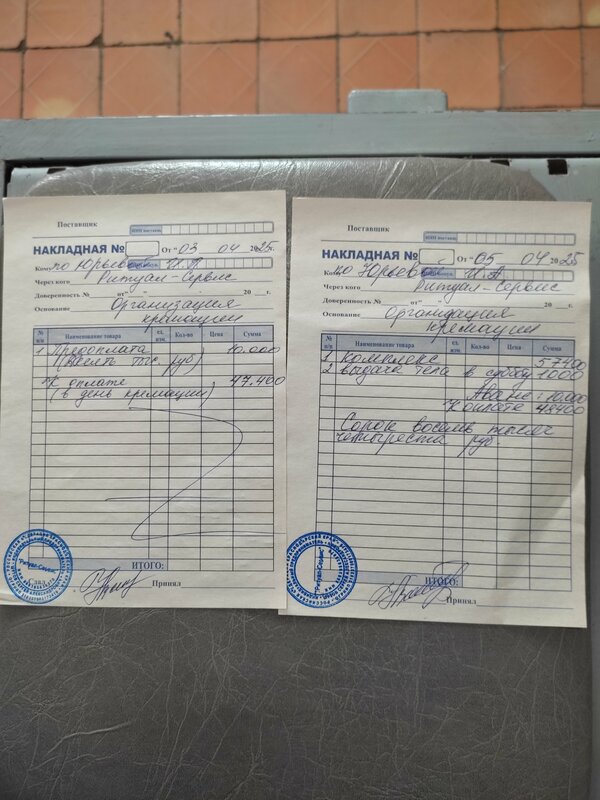 Поставщик
ИНН поставщ.
НАКЛАДНАЯ № От "03 04 2025г.
Кому по Юрьев И.А
Через кого Ритуал-Сервис
Доверенность № от" " 20 г.
Основание Организация
кремации
№ п/п Наименование товара ед. изм. Кол-во Цена Сумма
1 Предоплата 10.000
руб)
К оплате 47.400
(в день кремации)
ИТОГО:
Ритуал-Сервис
Сдал Принял
Поставщик
ИНН поставщ.
НАКЛАДНАЯ № От "05 04 2025
Кому по Юрьев И.А
Через кого Ритуал-Сервис
Доверенность № от" " 20 г.
Основание Организация
кремации
№ п/п Наименование товара ед. изм. Кол-во Цена Сумма
1 Комплекс 57400
2 Выдача тела в субботу 1000
Аванс: 10.000
К оплате 48400
Сорок восемь тысяч
четыреста руб
ИТОГО:
Ритуал-Сервис
Принял